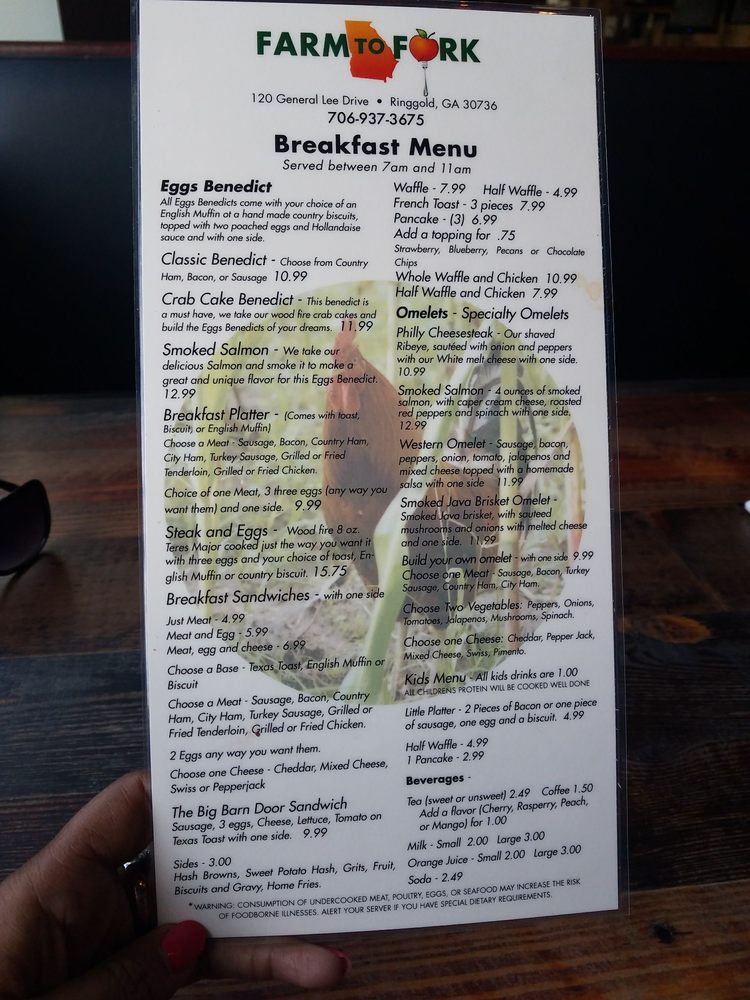 FARM TO FORK
120 General Lee Drive • Ringgold, GA 30736
706-937-3675
Breakfast Menu
Served between 7am and 11am
Eggs Benedict
All Eggs Benedicts come with your choice of an
English Muffin ot a hand made country biscuits,
topped with two poached eggs and Hollandaise
sauce and with one side.
Classic Benedict - Choose from Country
Ham, Bacon, or Sausage 10.99
Crab Cake Benedict - This benedict is
a must have, we take our wood fire crab cakes and
build the Eggs Benedicts of your dreams. 11.99
Smoked Salmon - We take our
delicious Salmon and smoke it to make a
great and unique flavor for this Eggs Benedict.
12.99
Breakfast Platter - (Comes with toast,
Biscuit, or English Muffin)
Choose a Meat - Sausage, Bacon, Country Ham,
City Ham, Turkey Sausage, Grilled or Fried
Tenderloin, Grilled or Fried Chicken.
Choice of one Meat, 3 three eggs (any way you
want them) and one side. 9.99
Steak and Eggs - Wood fire 8 oz.
Teres Major cooked just the way you want it
with three eggs and your choice of toast, En-
glish Muffin or country biscuit. 15.75
Breakfast Sandwiches - with one side
Just Meat - 4.99
Meat and Egg - 5.99
Meat, egg and cheese - 6.99
Choose a Base - Texas Toast, English Muffin or
Biscuit
Choose a Meat - Sausage, Bacon, Country
Ham, City Ham, Turkey Sausage, Grilled or
Fried Tenderloin, Grilled or Fried Chicken.
2 Eggs any way you want them.
Choose one Cheese - Cheddar, Mixed Cheese,
Swiss or Pepperjack
The Big Barn Door Sandwich
Sausage, 3 eggs, Cheese, Lettuce, Tomato on
Texas Toast with one side. 9.99
Sides - 3.00
Hash Browns, Sweet Potato Hash, Grits, Fruit,
Biscuits and Gravy, Home Fries.
Waffle - 7.99 Half Waffle - 4.99
French Toast - 3 pieces 7.99
Pancake - (3) 6.99
Add a topping for .75
Strawberry, Blueberry, Pecans or Chocolate
Chips
Whole Waffle and Chicken 10.99
Half Waffle and Chicken 7.99
Omelets - Specialty Omelets
Philly Cheesesteak - Our shaved
Ribeye, sautéed with onion and peppers
with our White melt cheese with one side.
10.99
Smoked Salmon - 4 ounces of smoked
salmon, with caper cream cheese, roasted
red peppers and spinach with one side.
12.99
Western Omelet - Sausage, bacon,
peppers, onion, tomato, jalapenos and
mixed cheese topped with a homemade
salsa with one side 11.99
Smoked Java Brisket Omelet -
Smoked Java brisket, with sauteed
mushrooms and onions with melted cheese
and one side. 11.99
Build your own omelet - with one side 9.99
Choose one Meat - Sausage, Bacon, Turkey
Sausage, Country Ham, City Ham.
Choose Two Vegetables: Peppers, Onions,
Tomatoes, Jalapenos, Mushrooms, Spinach.
Choose one Cheese: Cheddar, Pepper Jack,
Mixed Cheese, Swiss, Pimento.
Kids Menu - All kids drinks are 1.00
ALL CHILDRENS PROTEIN WILL BE COOKED WELL DONE
Little Platter - 2 Pieces of Bacon or one piece
of sausage, one egg and a biscuit. 4.99
Half Waffle - 4.99
1 Pancake - 2.99
Beverages -
Tea (sweet or unsweet) 2.49 Coffee 1.50
Add a flavor (Cherry, Rasperry, Peach,
or Mango) for 1.00
Milk - Small 2.00 Large 3.00
Orange Juice - Small 2.00 Large 3.00
Soda - 2.49
*WARNING: CONSUMPTION OF UNDERCOOKED MEAT, POULTRY, EGGS, OR SEAFOOD MAY INCREASE THE RISK
OF FOODBORNE ILLNESSES. ALERT YOUR SERVER IF YOU HAVE SPECIAL DIETARY REQUIREMENTS.